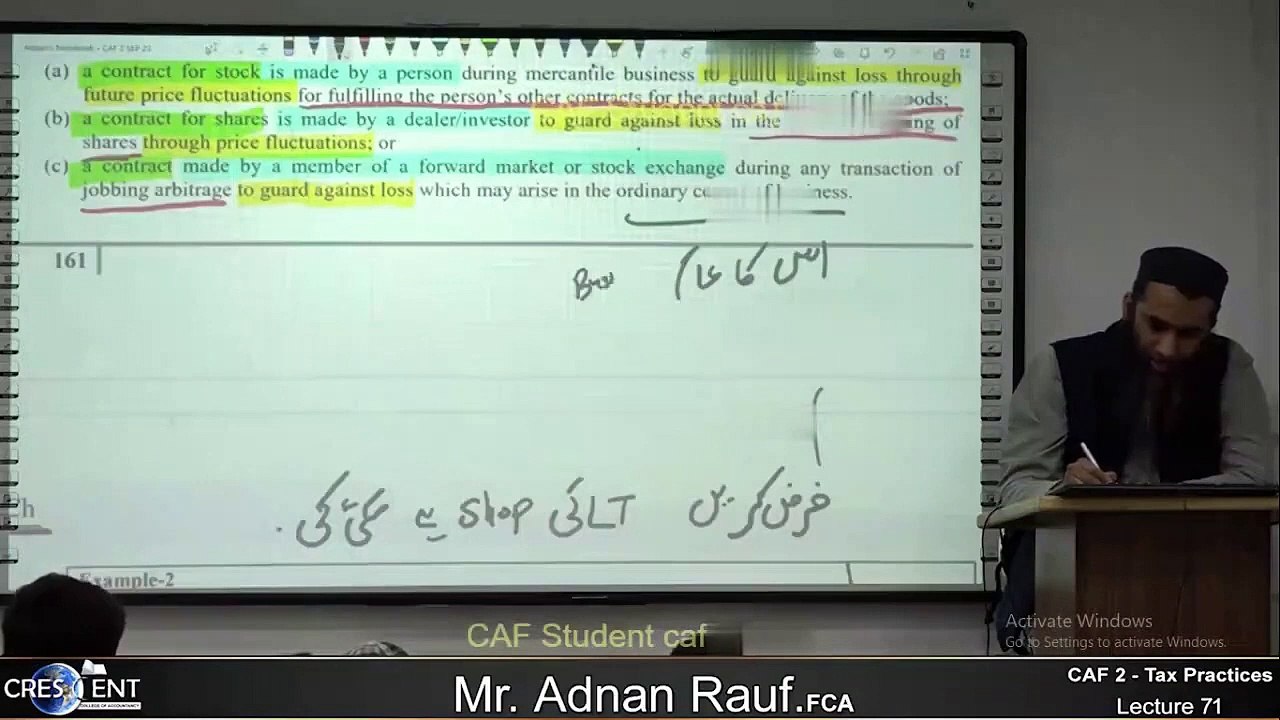 (a) a contract for stock is made by a person during mercantile business to guard against loss through
future price fluctuations for fulfilling the person's other contracts for the actual of the goods;
(b) a contract for shares is made by a dealer/investor to guard against loss in the ing of
shares through price fluctuations; or
(c) a contract made by a member of a forward market or stock exchange during any transaction of
jobbing arbitrage to guard against loss which may arise in the ordinary of ness.
161
اس کا عا
فرض کریں LT کی shop ہے گی کی
Example-2
CAF Student caf
Activate Windows
Go to Settings to activate Windows.
CRESCENT
COLLEGE OF ACCOUNTANCY
Mr. Adnan Rauf.FCA
CAF 2 - Tax Practices
Lecture 71